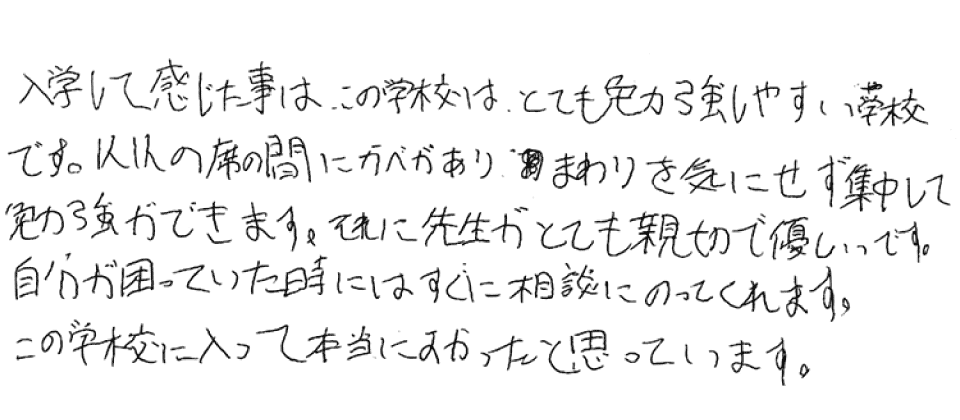 入学して感じた事は、この学校は、とても勉強しやすい学校
です。人人の席の間にカベがあり、まわりを気にせず集中して
勉強ができます。それに先生がとても親切で優しいです。
自分が困っていた時にはすぐに相談にのってくれます。
この学校に入って本当によかったと思っています。